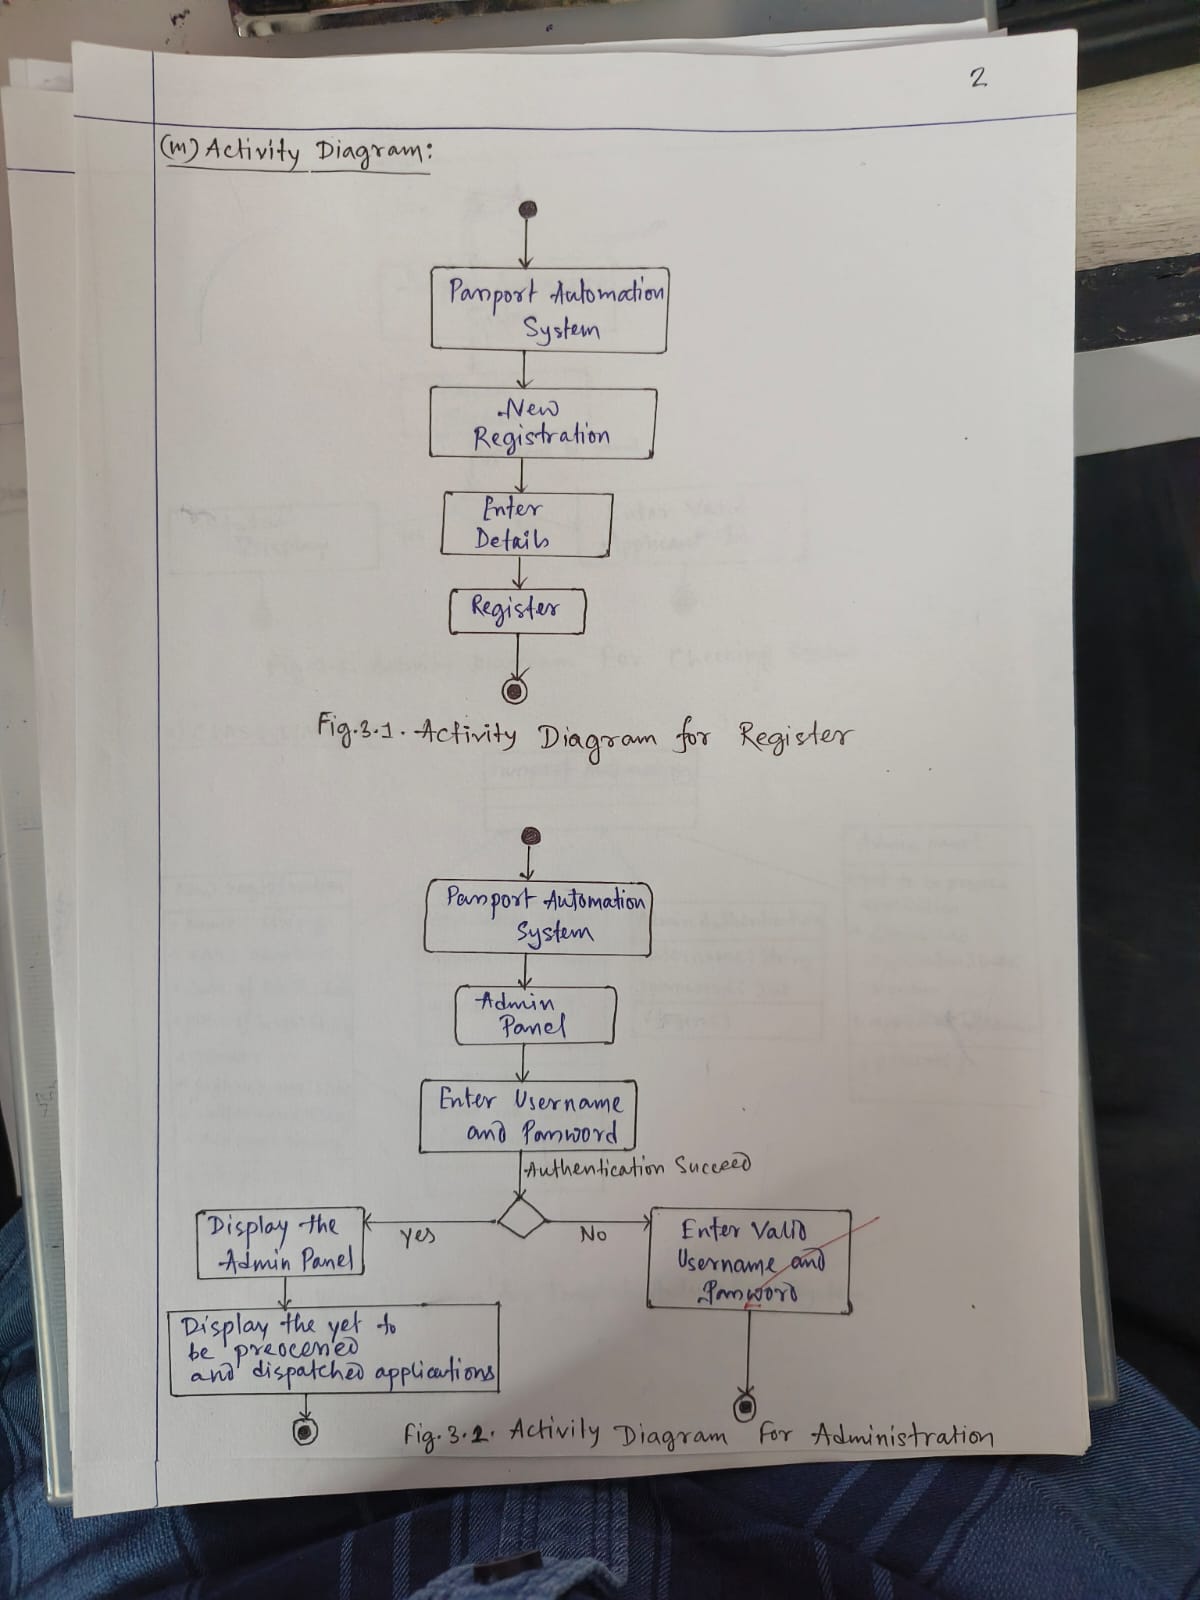 2
(m) Activity Diagram:
Passport Automation
System
New
Registration
Enter
Details
Register
Fig.3.1. Activity Diagram for Register
Passport Automation
System
Admin
Panel
Enter Username
and Password
Authentication Succeed
Display the
Admin Panel
Yes
No
Enter Valid
Username and
Password
Display the yet to
be preocessed
and dispatched applications
Fig. 3.2. Activity Diagram For Administration